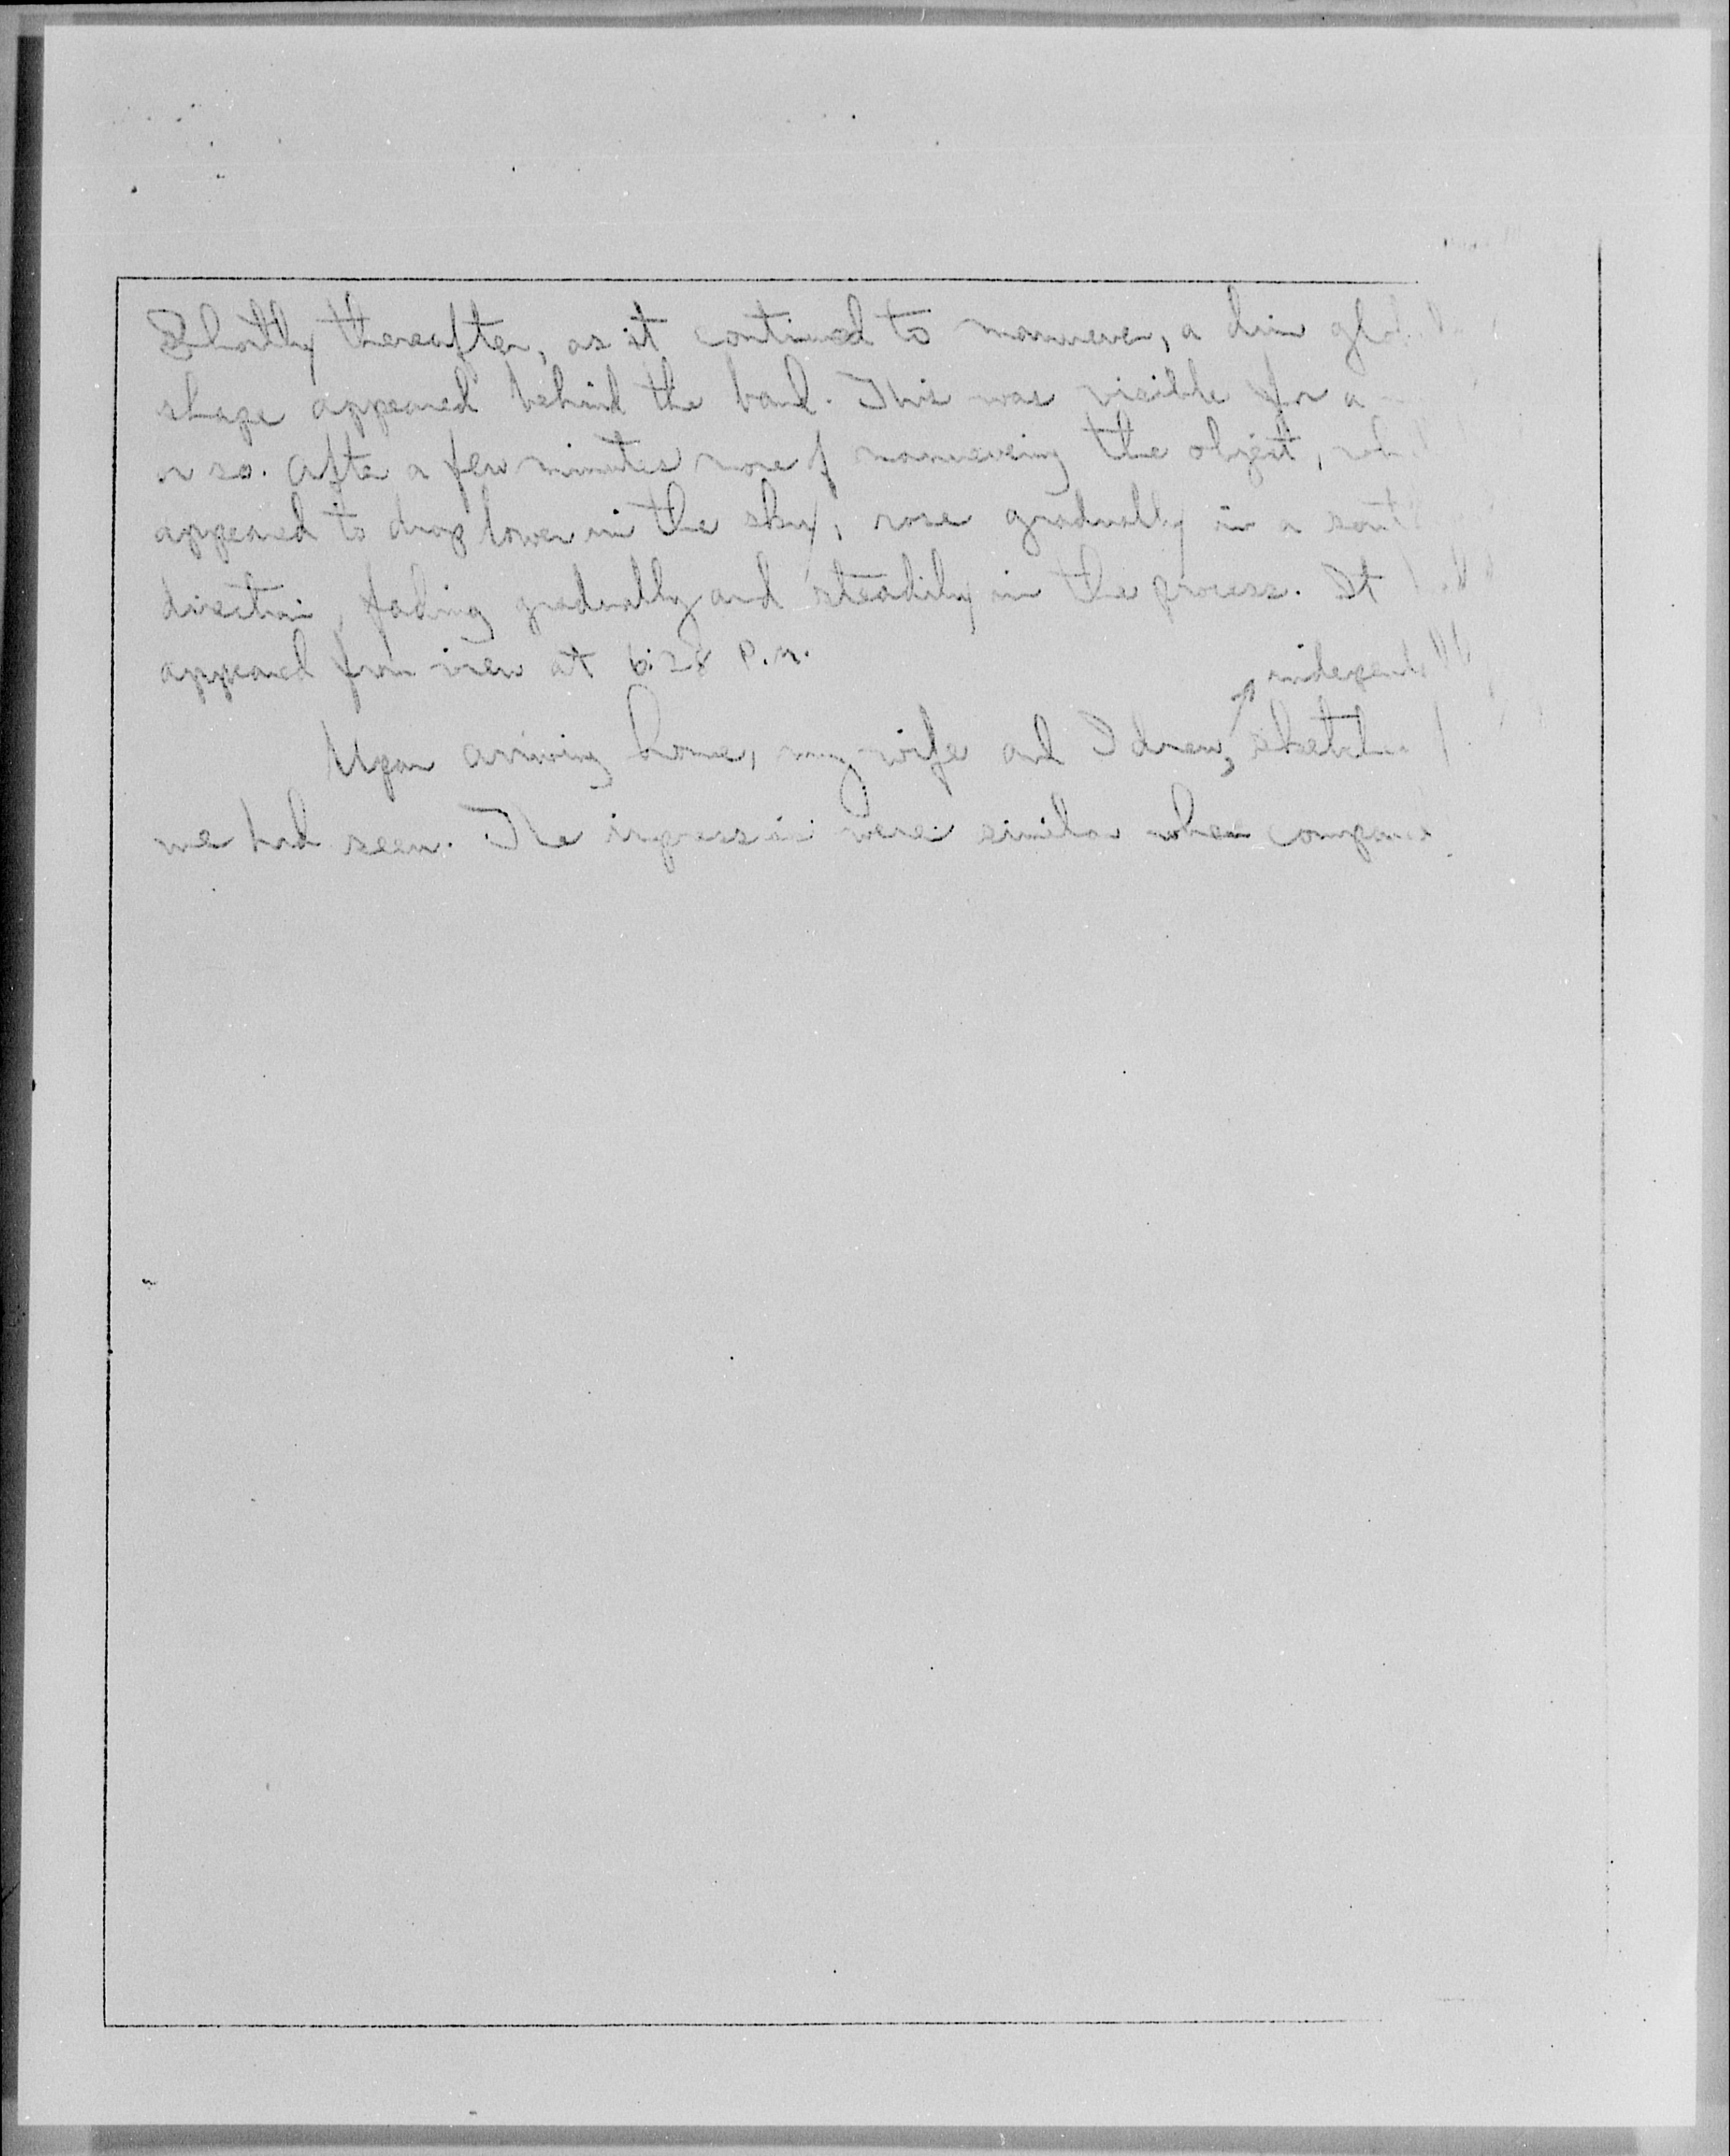 Shortly thereafter, as it continued to maneuver, a dim
shape appeared behind the band. This was visible for a
or so. After a few minutes more of maneuvering the object,
appeared to drop lower in the sky, rose gradually in a
direction, fading gradually and steadily in the process. It
appeared from view at 6:28 P.M.
Upon arriving home, my wife and I drew sketches
we had seen. The impressions were similar when compared.